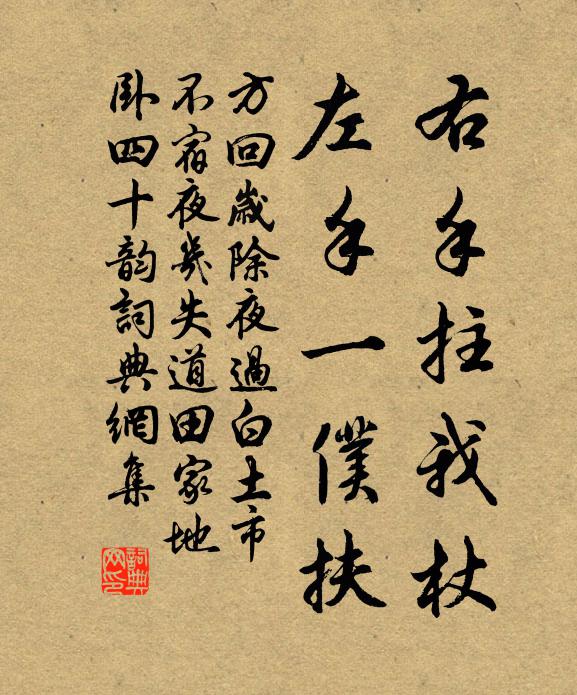 右手拄我杖
左手一僕扶
方回歲除夜過白土市
不宿夜幾失道田家地
臥四十韵詞典網集
詞典
网印